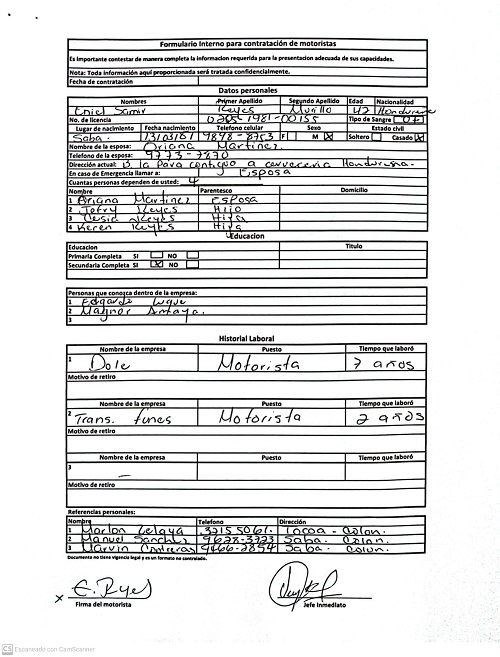 Formulario Interno para contratación de motoristas
Es importante contestar de manera completa la informacion requerida para la presentacion adecuada de sus capacidades.
Nota: Toda información aquí proporcionada será tratada confidencialmente.
Fecha de contratación
Datos personales
Nombres Primer Apellido Segundo Apellido Edad Nacionalidad
Eniel Samir Reyes Murillo 42 Hondureña
No. de licencia 0205-1981-00155 Tipo de Sangre O+
Lugar de nacimiento Fecha nacimiento Telefono celular Sexo Estado civil
Saba. 13/03/81 9898-8753 F M X Soltero Casado X
Nombre de la esposa: Oriana Martinez.
Telefono de la esposa: 9773-7870
Dirección actual: B. la Pava contiguo a cerveceria Hondureña.
En caso de Emergencia llamar a: Esposa
Cuantas personas dependen de usted: 4
Nombre Parentesco Domicilio
1 Oriana Martinez Esposa
2 Reyes Hijo
3 Reyes Hija
4 Keren Reyes Hija
Educacion
Educacion Titulo
Primaria Completa SI NO
Secundaria Completa SI X NO
Personas que conozca dentro de la empresa:
1 Edgardo Luque
2 Maynor Amaya.
3
Historial Laboral
Nombre de la empresa Puesto Tiempo que laboró
1 Dole Motorista 7 años
Motivo de retiro
Nombre de la empresa Puesto Tiempo que laboró
2 Trans. funes Motorista 2 años
Motivo de retiro
Nombre de la empresa Puesto Tiempo que laboró
3 –
Motivo de retiro
Referencias personales:
Nombre Telefono Dirección
1 Marlon Zelaya 32155061. Tocoa - Colon.
2 Manuel Sanchez 9628-3723 Saba. Colon.
3 Marvin Contreras 9466-2854 Saba. Colon.
Documento no tiene vigencia legal y es un formato no controlado.
E. Reyes
Firma del motorista Jefe Inmediato
CS Escaneado con CamScanner